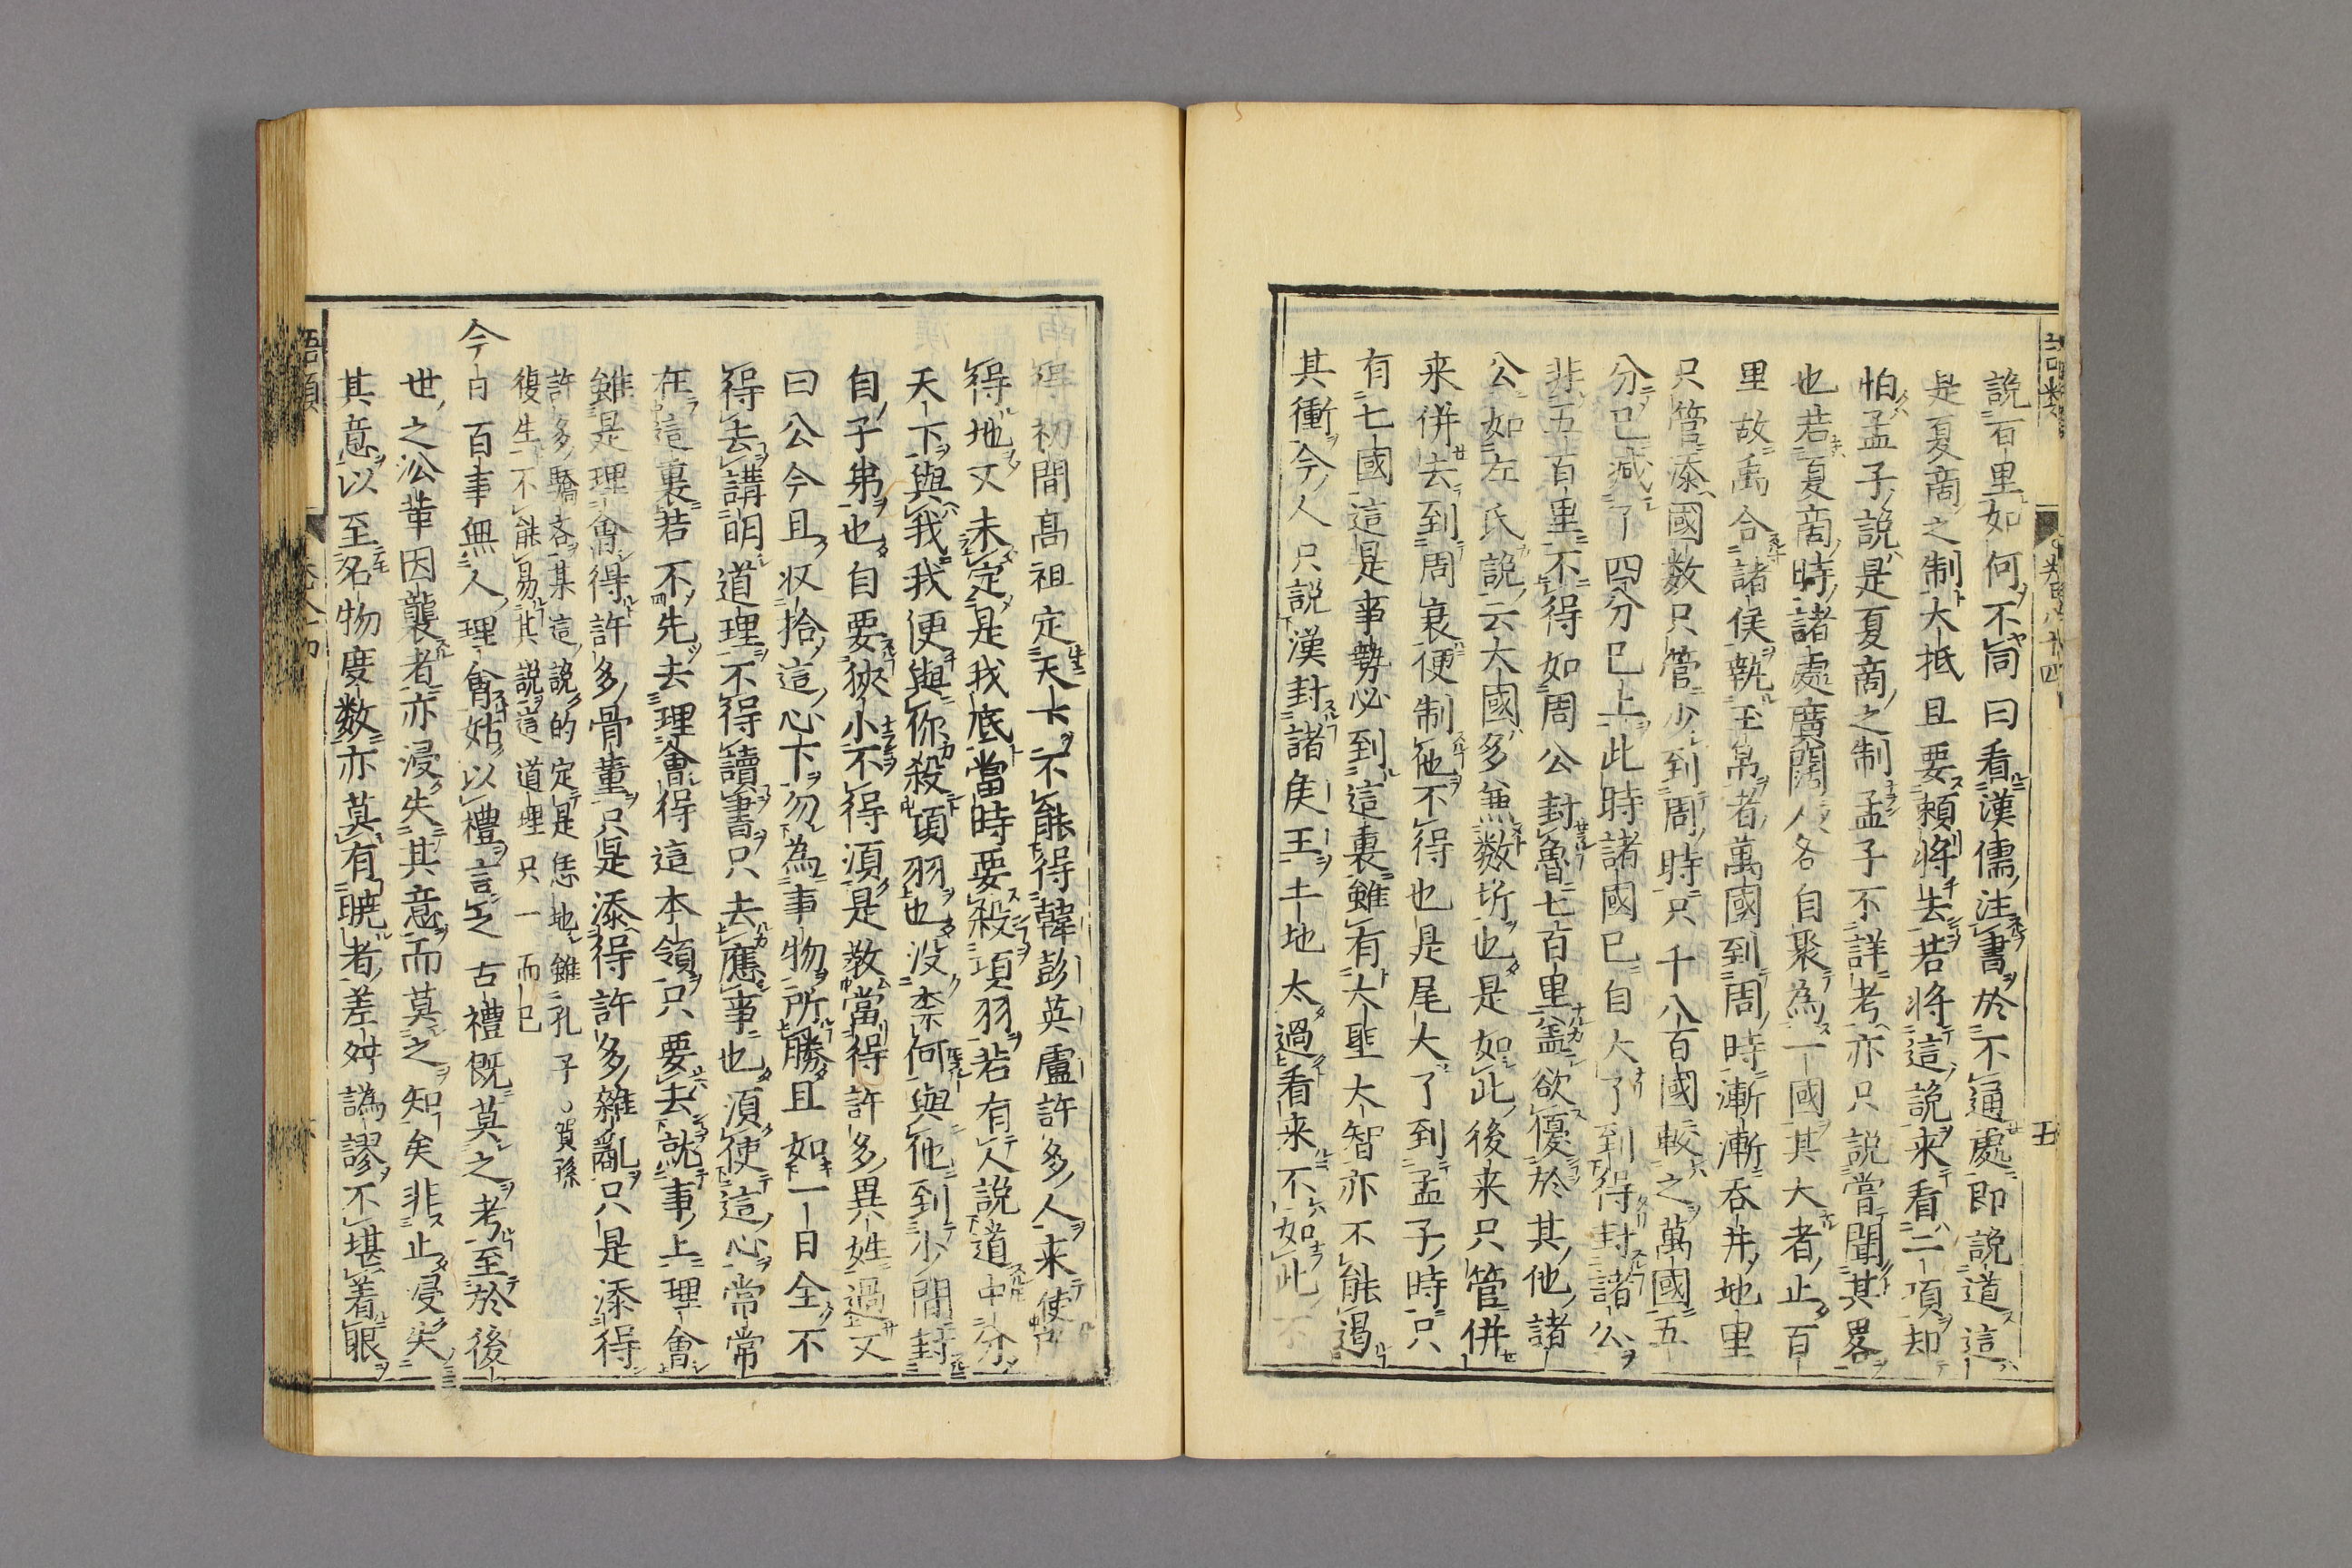 說百里如何不同曰看漢儒注書於不通處即說道這
是夏商之制大抵且要賴將去若將這說来看二項却
怕孟子說是夏商之制孟子不詳考亦只說嘗聞其畧
也若夏商時諸處廣闊人各自聚為一國其大者止百
里故禹合諸侯執玉帛者萬國到周時漸漸吞并地里
只管添國数只管少到周時只千八百國較之萬國五
分已減了四分已上此時諸國已自大了到得封諸公
非五百里不得如周公封魯七百里盖欲優於其他諸
公如左氏說云大國多兼数圻也是如此後来只管併
来併去到周衰便制他不得也是尾大了到孟子時只
有七國這是事勢必到這裏雖有大聖大智亦不能遏
其衝今人只說漢封諸侯王土地太過看来不如此不
得初間高祖定天下不能得韓彭英盧許多人来使
得地又未定是我底當時要殺項羽若有人說道中分
天下與我我便與你殺項羽也没柰何與他到少間封
自子弟也自要狹小不得須是教當得許多異姓過又
曰公今且収拾這心下勿為事物所勝且如一日全不
得去講明道理不得讀書只去應事也須使這心常常
在這裏若不先去理會得這本領只要去就事上理會
雖是理會得許多骨董只是添得許多雜亂只是添得
許多驕吝某這說的定是恁地雖孔子
復生不能易其說這道理只一而已 賀孫
今日百事無人理會姑以禮言之古禮既莫之考至於後
世之沿革因襲者亦浸失其意而莫之知矣非止浸失
其意以至名物度数亦莫有曉者差舛譌謬不堪着眼
語類
卷八十四
五